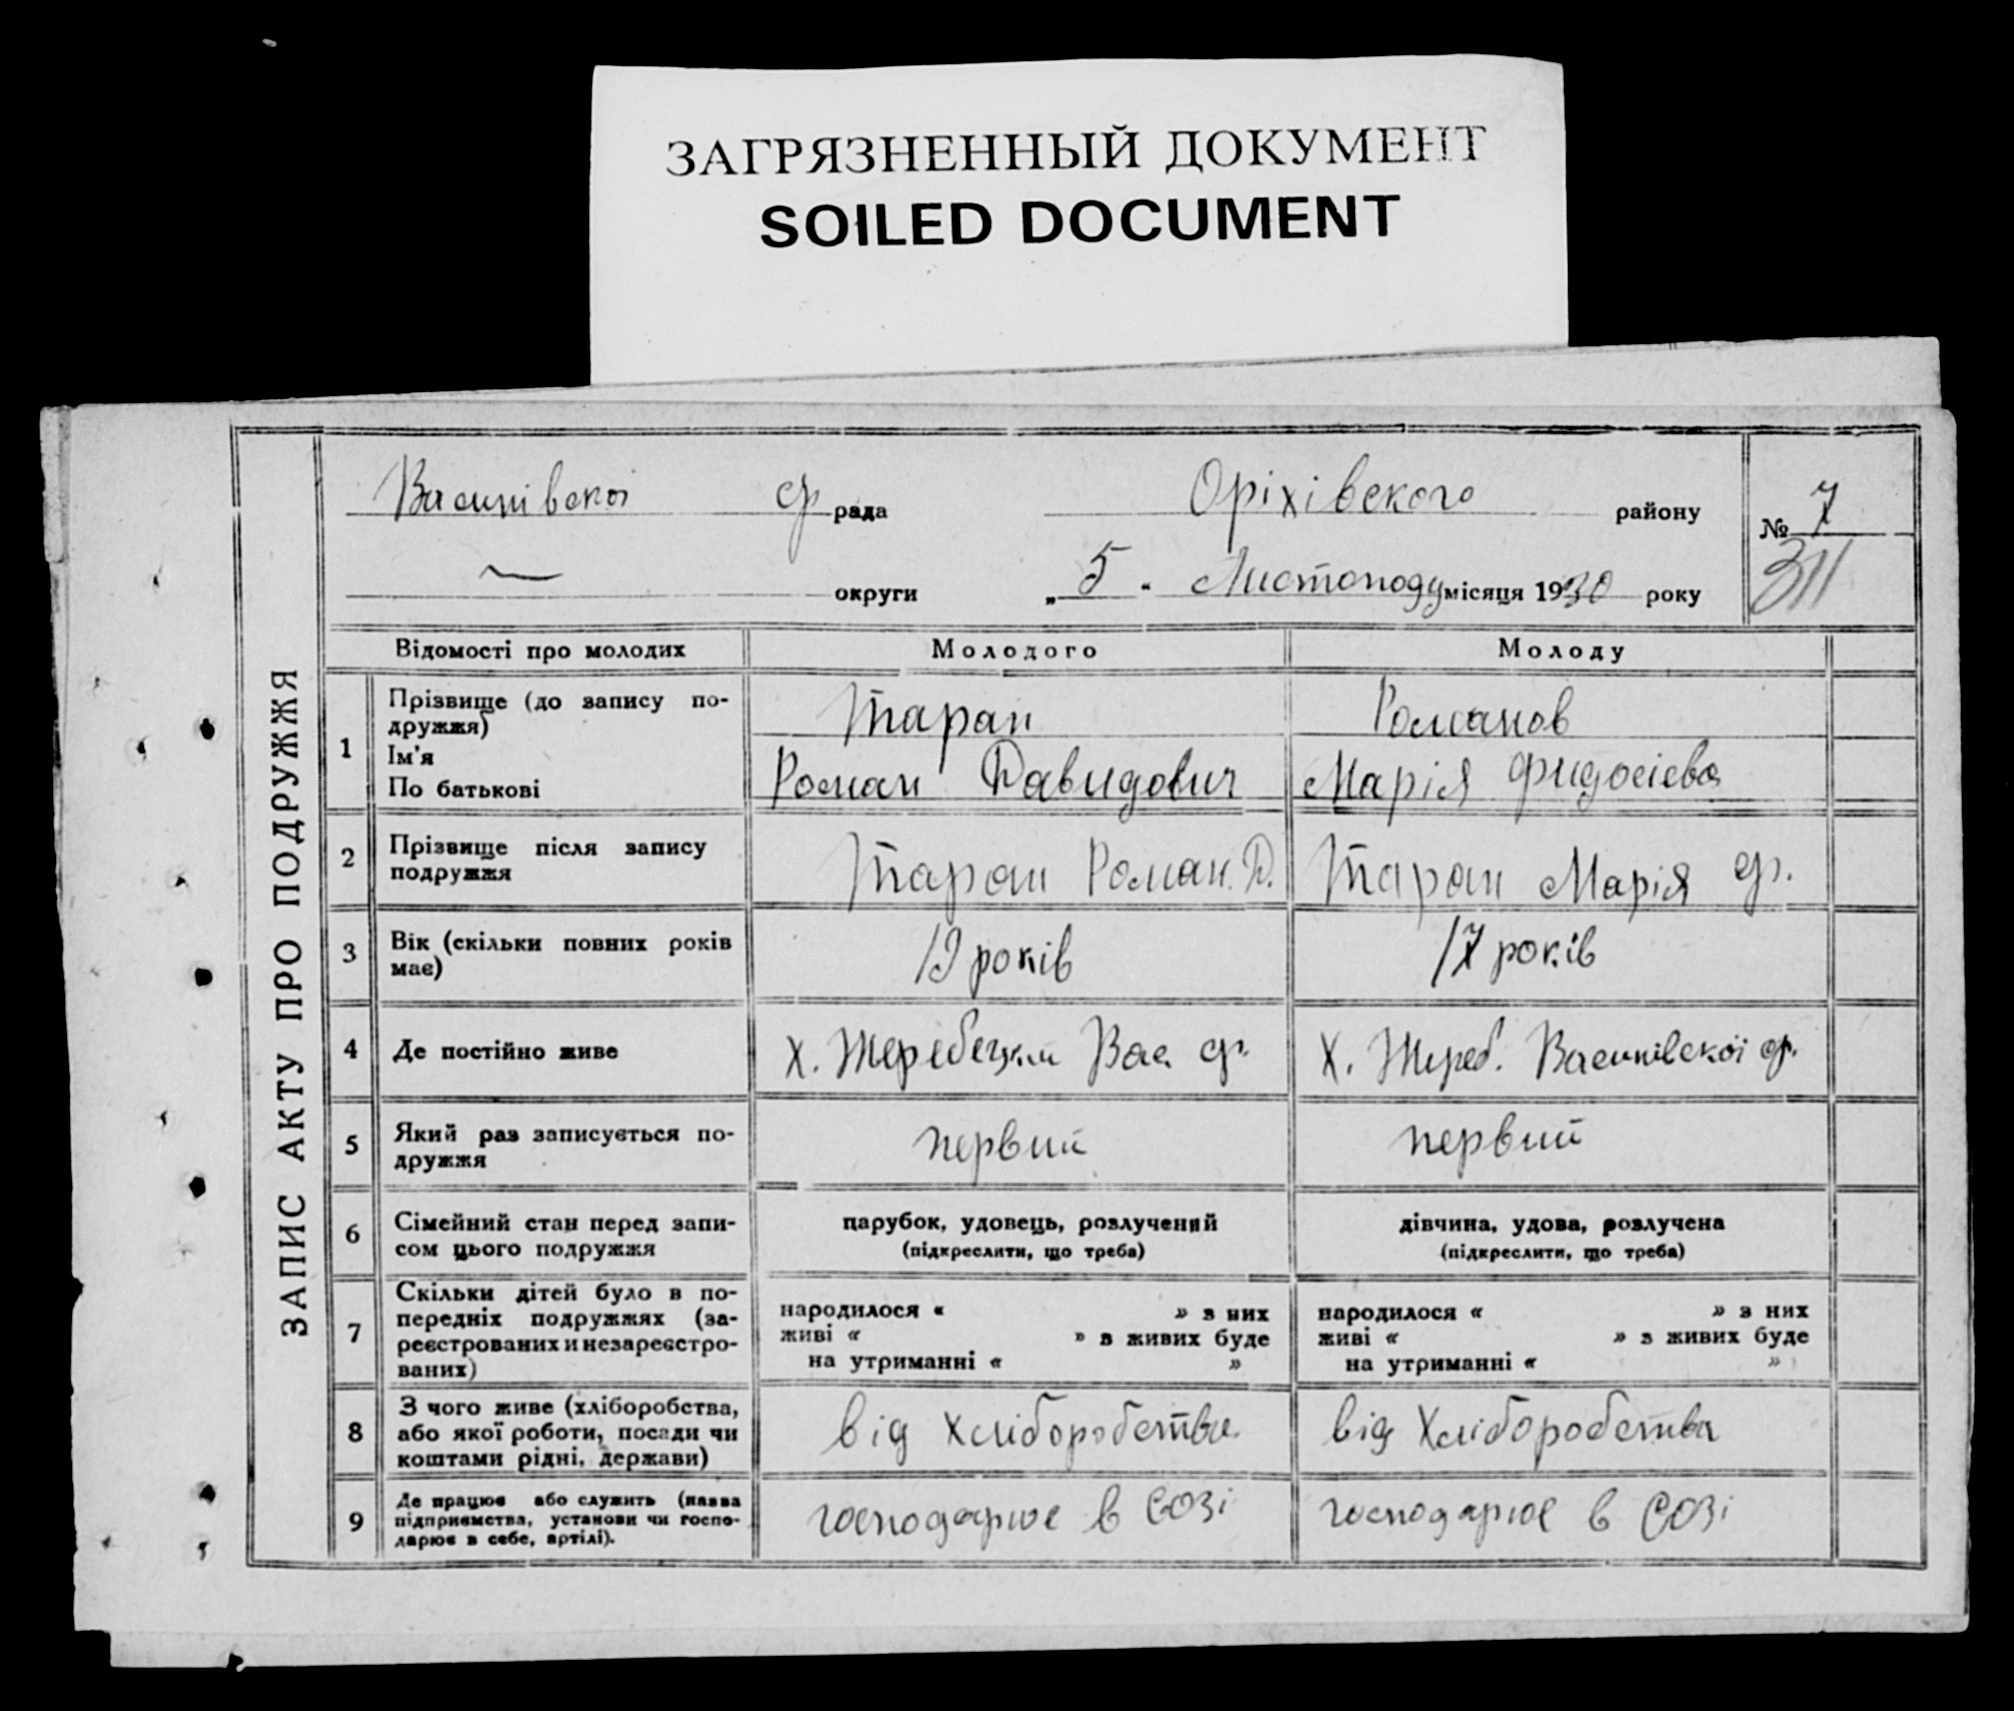 ЗАГРЯЗНЕННЫЙ ДОКУМЕНТ
SOILED DOCUMENT
ЗАПИС АКТУ ПРО ПОДРУЖЖЯ
Васинівскої ср рада Оріхівского району № 7
округи „ 5 " Листопаду місяця 1930 року 311
Відомості про молодих Молодого Молоду
1 Прізвище (до запису по-
дружжя) Таран Романов
Ім'я
По батькові Роман Давидович Марія Фидосієва
2 Прізвище після запису
подружжя Таран Роман. Д. Таран Марія Ф.
3 Вік (скільки повних років
має) 19 років 17 років
4 Де постійно живе х. Жеребецкий Вас. ср. х. Жереб. Васинівскої ср.
5 Який раз записується по-
дружжя первий первий
6 Сімейний стан перед запи-
сом цього подружжя
парубок, удовець, розлучений
(підкреслити, що треба)
дівчина, удова, розлучена
(підкреслити, що треба)
7 Скільки дітей було в по-
передніх подружжях (за-
реєстрованих и незареєстро-
ваних)
народилося « » з них
живі « » з живих буде
на утриманні « »
народилося « » з них
живі « » з живих буде
на утриманні « »
8 З чого живе (хліборобства,
або якої роботи, посади чи
коштами рідні, держави)
від хліборобства
від хліборобства
9 Де працює або служить (назва
підприємства, установи чи госпо-
дарює в себе, артілі).
господарює в СОЗі
господарює в СОЗі